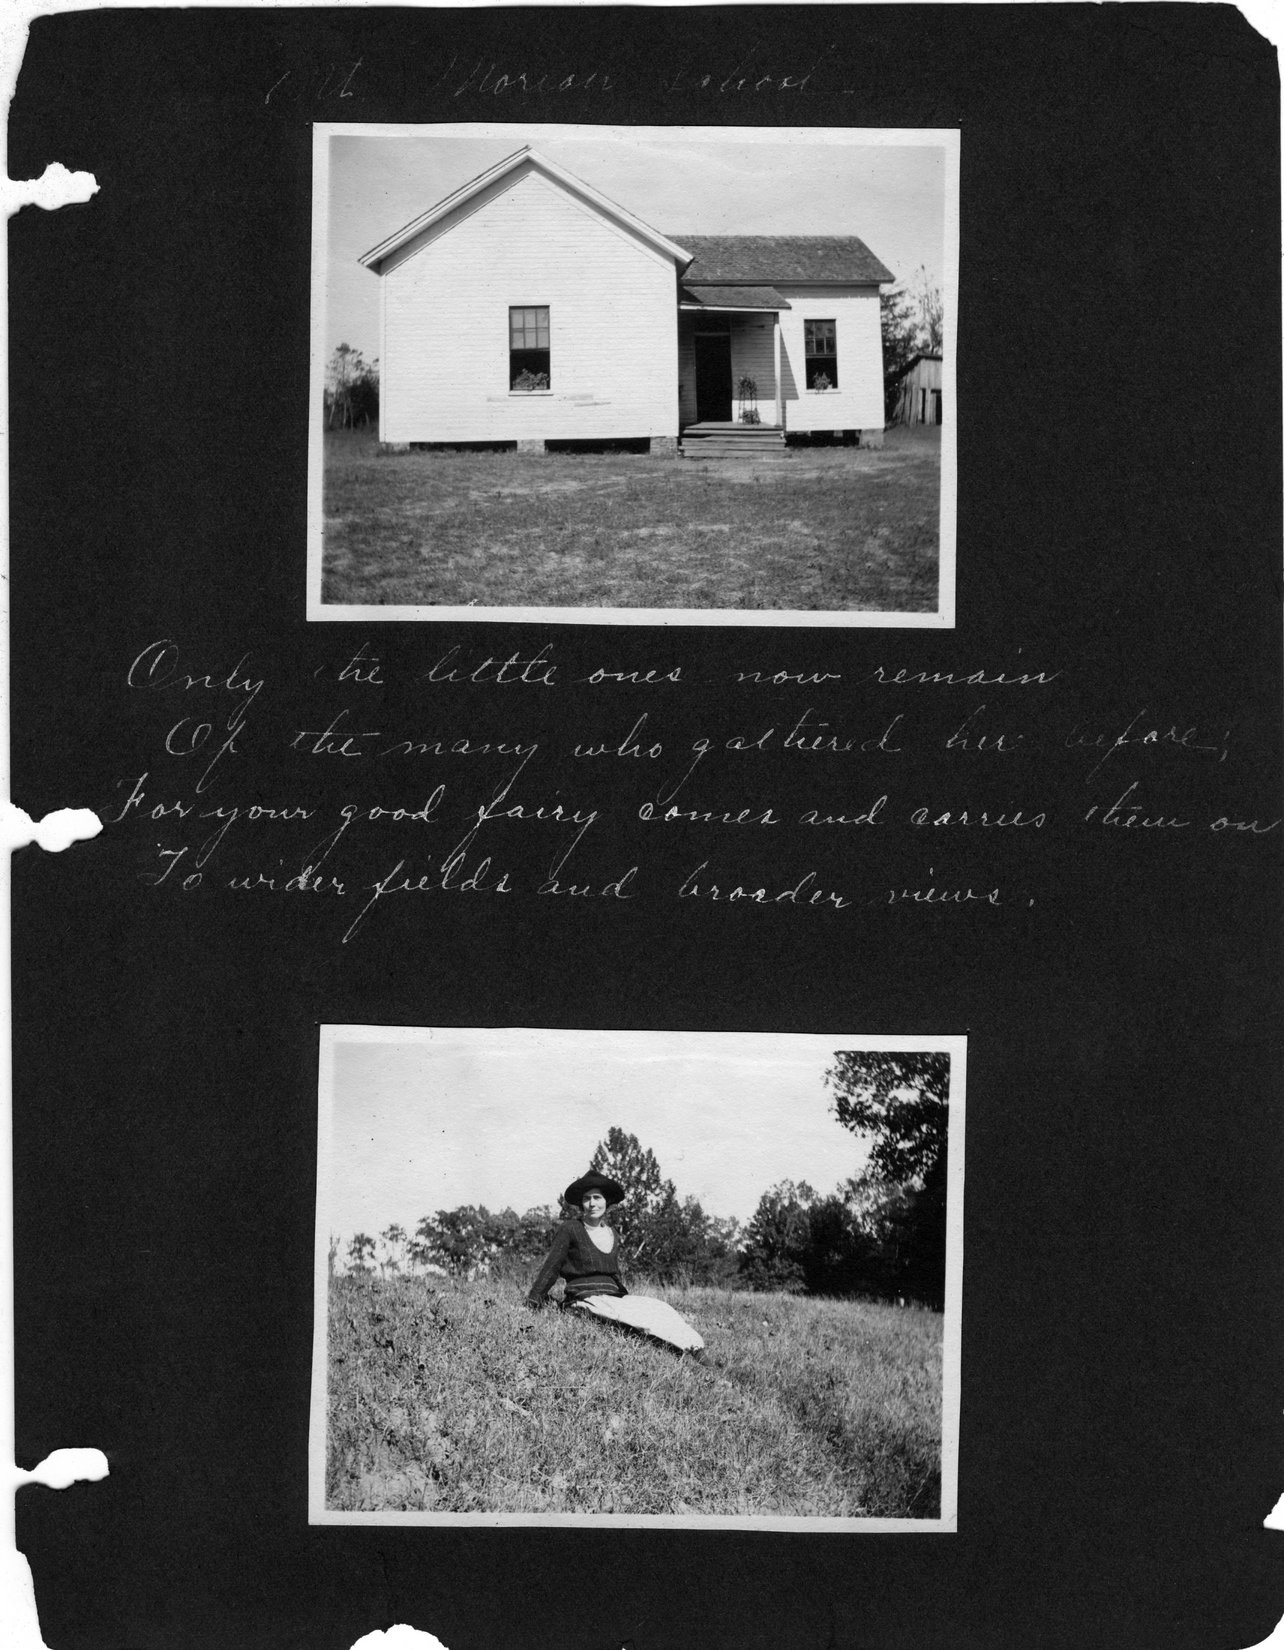 Mt. Moriah School
Only the little ones now remain
Of the many who gathered her before;
For your good fairy comes and carries them on
To wider fields and broader views.